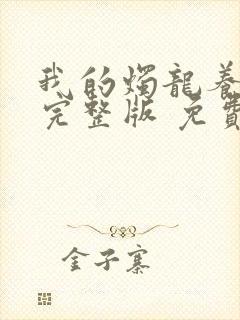 我的燭龍養
完整版 免費
金子寨